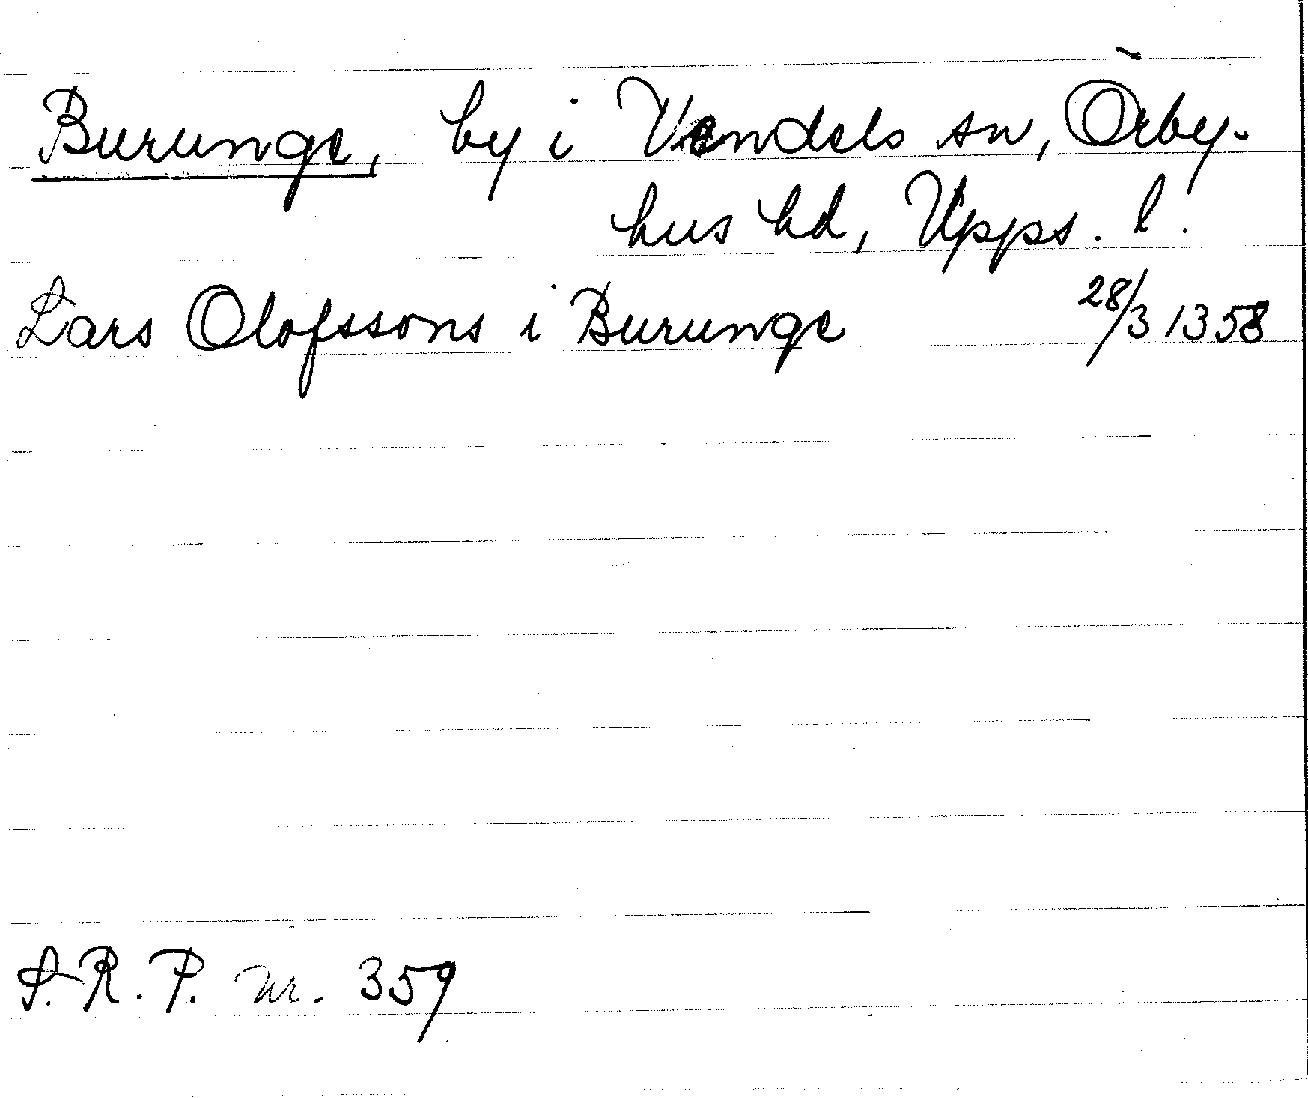 Burunge, by i Vendels sn, Örby-
hus hd, Upps. l.
Lars Olofssons i Burunge 28/3 1358
S.R.P. nr. 359